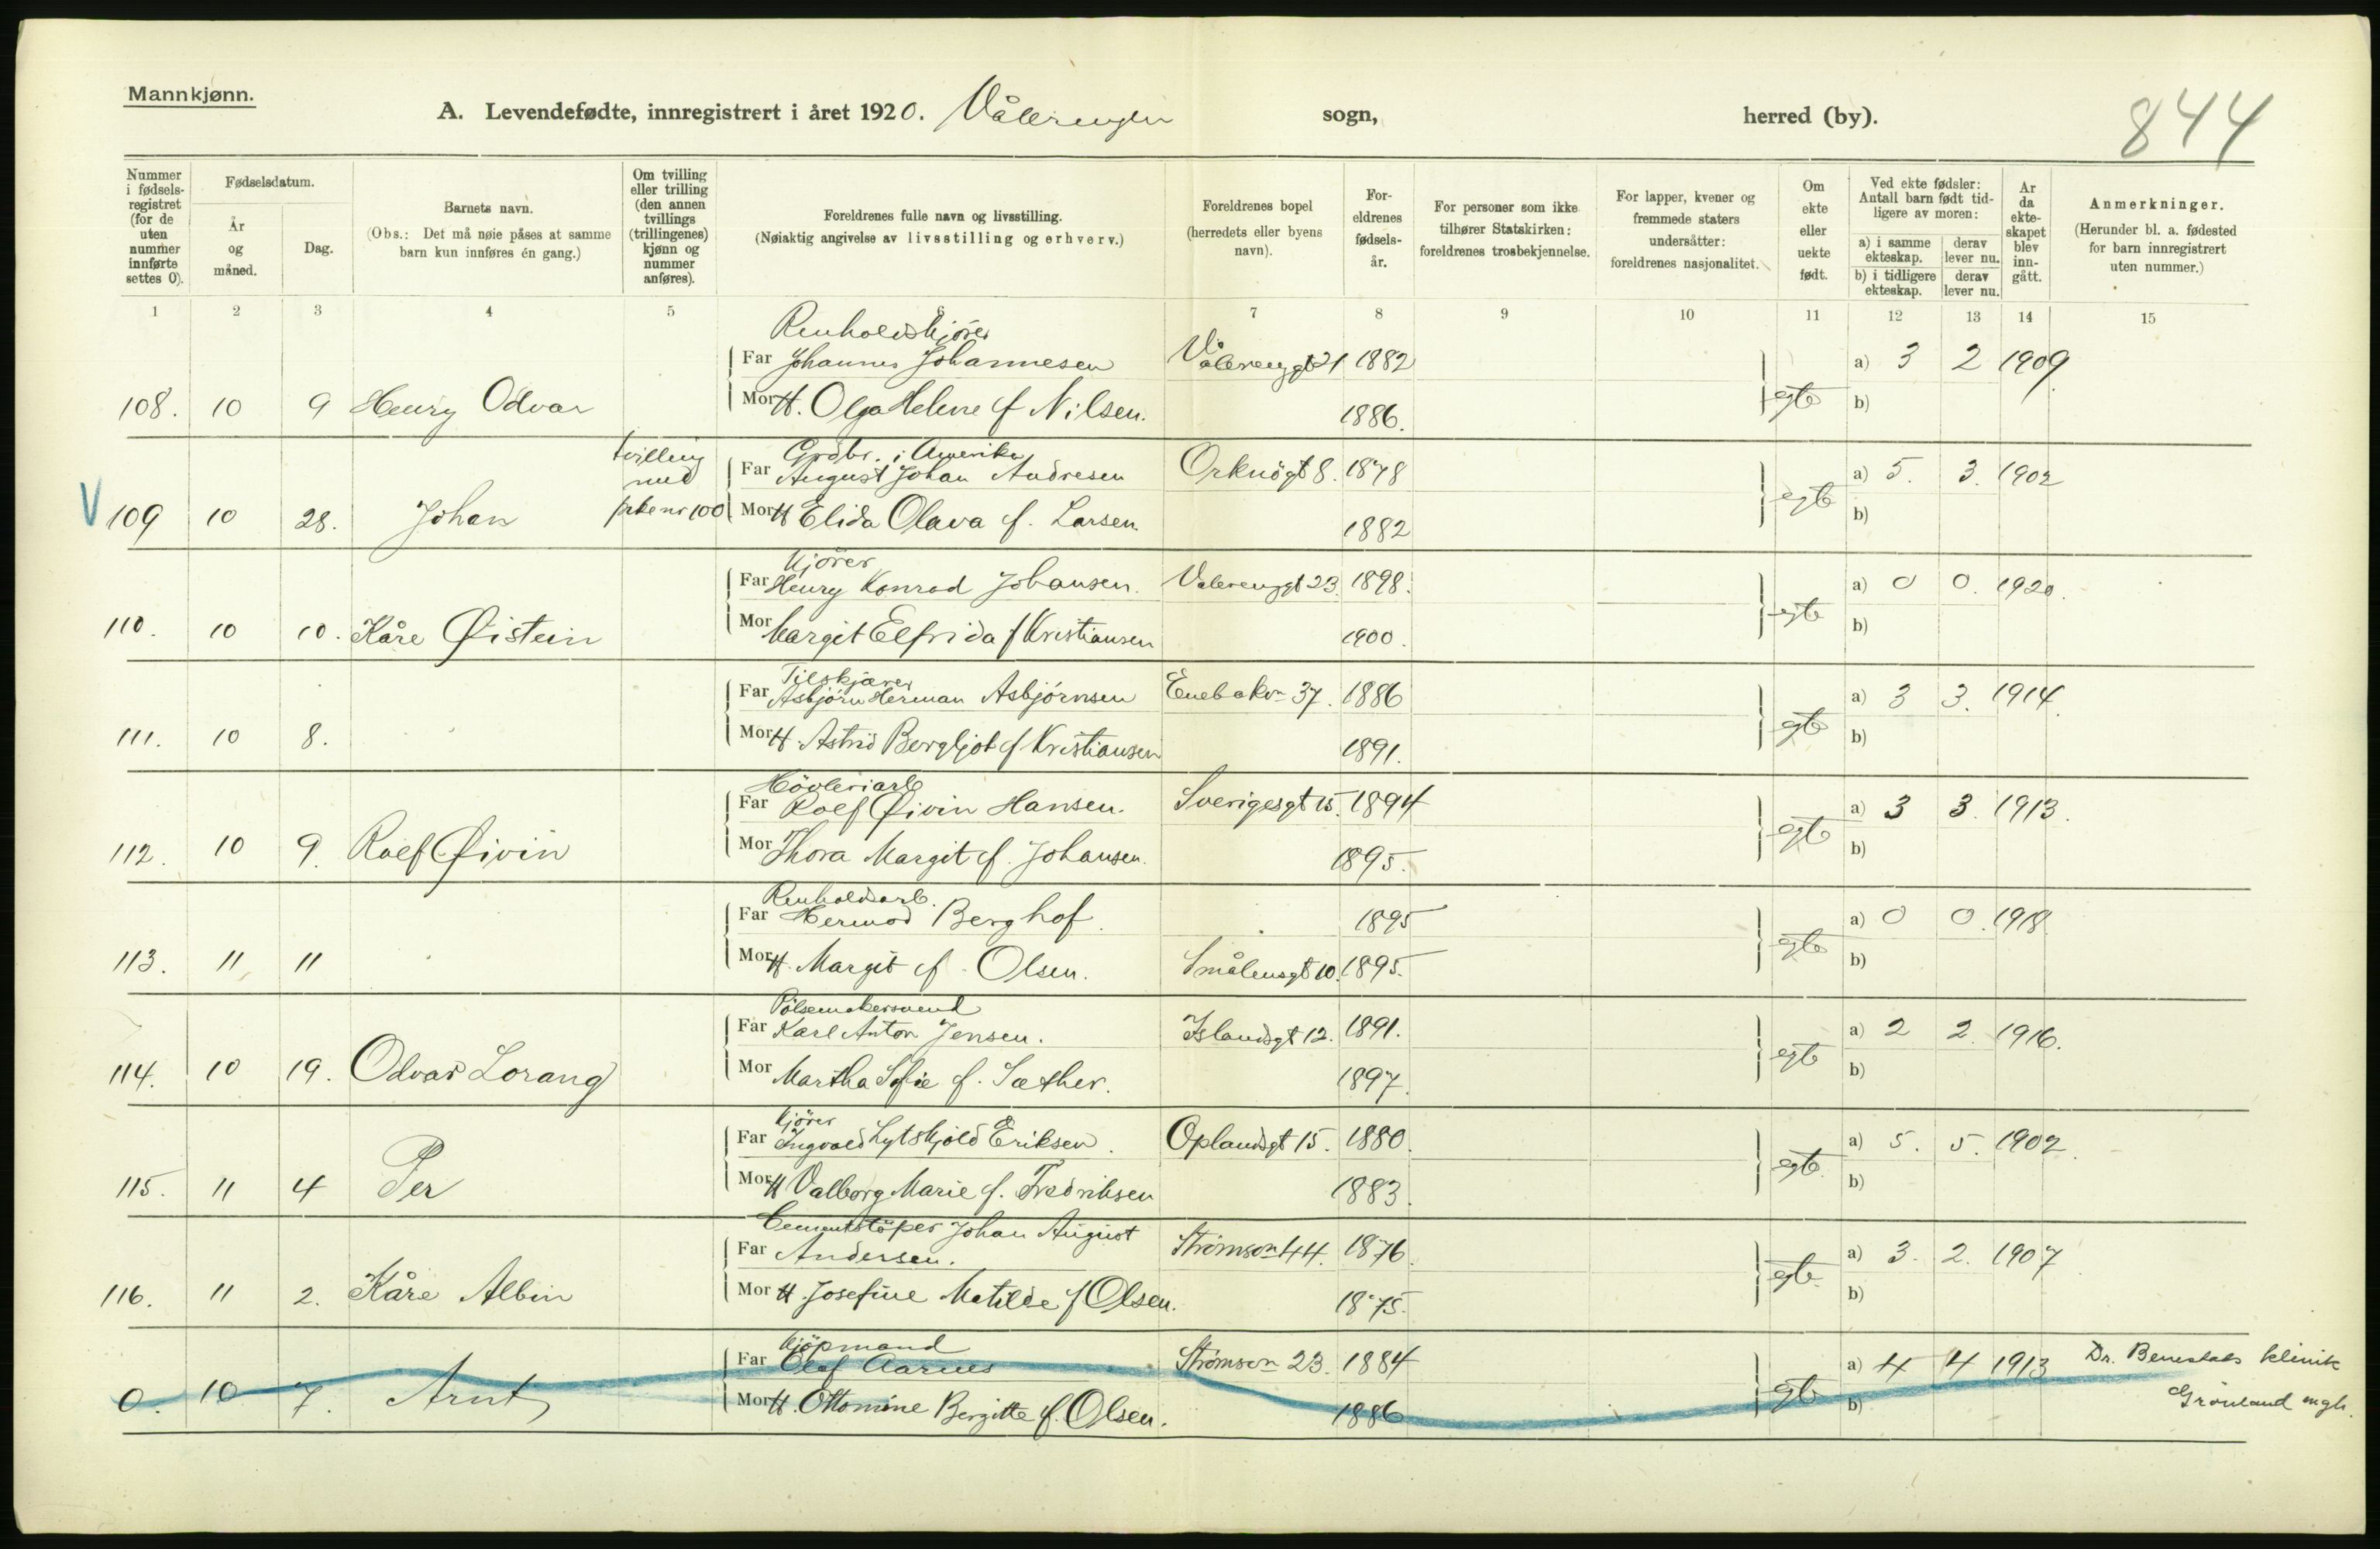 Mannkjønn.
A. Levendefødte, innregistrert i året 1920. Vålerengen sogn, herred (by).
844
Nummer i fødsels-registret (for de uten nummer innførte settes 0).
Fødselsdatum.
År og måned.
Dag.
Barnets navn.
(Obs.: Det må nøie påses at samme barn kun innføres én gang.)
Om tvilling eller trilling (den annen tvillings (trillingenes) kjønn og nummer anføres).
Foreldrenes fulle navn og livsstilling.
(Nøiaktig angivelse av livsstilling og erhverv.)
Foreldrenes bopel (herredets eller byens navn).
For-eldrenes fødsels-år.
For personer som ikke tilhører Statskirken: foreldrenes trosbekjennelse.
For lapper, kvener og fremmede staters undersåtter: foreldrenes nasjonalitet.
Om ekte eller uekte født.
Ved ekte fødsler: Antall barn født tid-ligere av moren:
a) i samme ekteskap.
derav lever nu.
b) i tidligere ekteskap.
derav lever nu.
År da ekte-skapet blev inn-gått.
Anmerkninger.
(Herunder bl. a. fødested for barn innregistrert uten nummer.)
1 2 3 4 5 6 7 8 9 10 11 12 13 14 15
Renholdskjører
Far Johannes Johannesen Vålerenggt 21 1882 a) 3 2 1909
108. 10 9 Henry Odvar Mor H. Olga Helene f Nilsen. 1886. egte b)
tvilling med pikenr 100
Grdbr. i Amerika
Far August Johan Andresen Orknögt 8. 1878 a) 5. 3. 1902
V 109 10 28. Johan Mor H Elida Olava f. Larsen 1882 egte b)
Kjører
Far Henry Konrad Johansen. Valerenggt 23. 1898. a) 0 0. 1920.
110. 10 10. Kåre Øistein Mor Margit Elfrida f Kristiansen 1900. egte b)
Tilskjærer
Far Asbjörn Herman Asbjörnsen Enebakvn 37. 1886 a) 3 3. 1914.
111. 10 8. Mor H. Astrid Bergljot f Kristiansen 1891. egte b)
Høvleriarb
Far Rolf Øivin Hansen. Sverigesgt 15. 1894 a) 3 3. 1913.
112. 10 9. Rolf Øivin Mor Thora Margit f. Johansen. 1895. egte b)
Renholdsarb.
Far Hermod Berghof. 1895 a) 0 0. 1918
113. 11 11 Mor H. Margit f. Olsen. Smålensgt 10. 1895. egte b)
Pölsemakersvend
Far Karl Anton Jensen. Islandsgt 12. 1891. a) 2 2. 1916.
114. 10 19. Odvar Lorang Mor Martha Sofie f. Sæther. 1897. egte b)
Kjörer
Far Ingvald Lytskjold Eriksen. Oplandsgt 15. 1880. a) 5. 5. 1902.
115. 11 4 Per Mor H Valborg Marie f. Fredriksen 1883. egte. b)
Cementstöper Johan August
Far Andersen. Strömsvn 44. 1876. a) 3. 2. 1907
116. 11 2. Kåre Albin Mor H. Josefine Matilde f Olsen. 1875. egte. b)
Kjöpmand
Far Olaf Aarnes Strömsvn 23. 1884 a) 4 4 1913 Dr. Benestads klinik
0. 10 7. Arnt Mor H. Ottomine Bergitte f. Olsen. 1886 egte b) Grönland mgh.